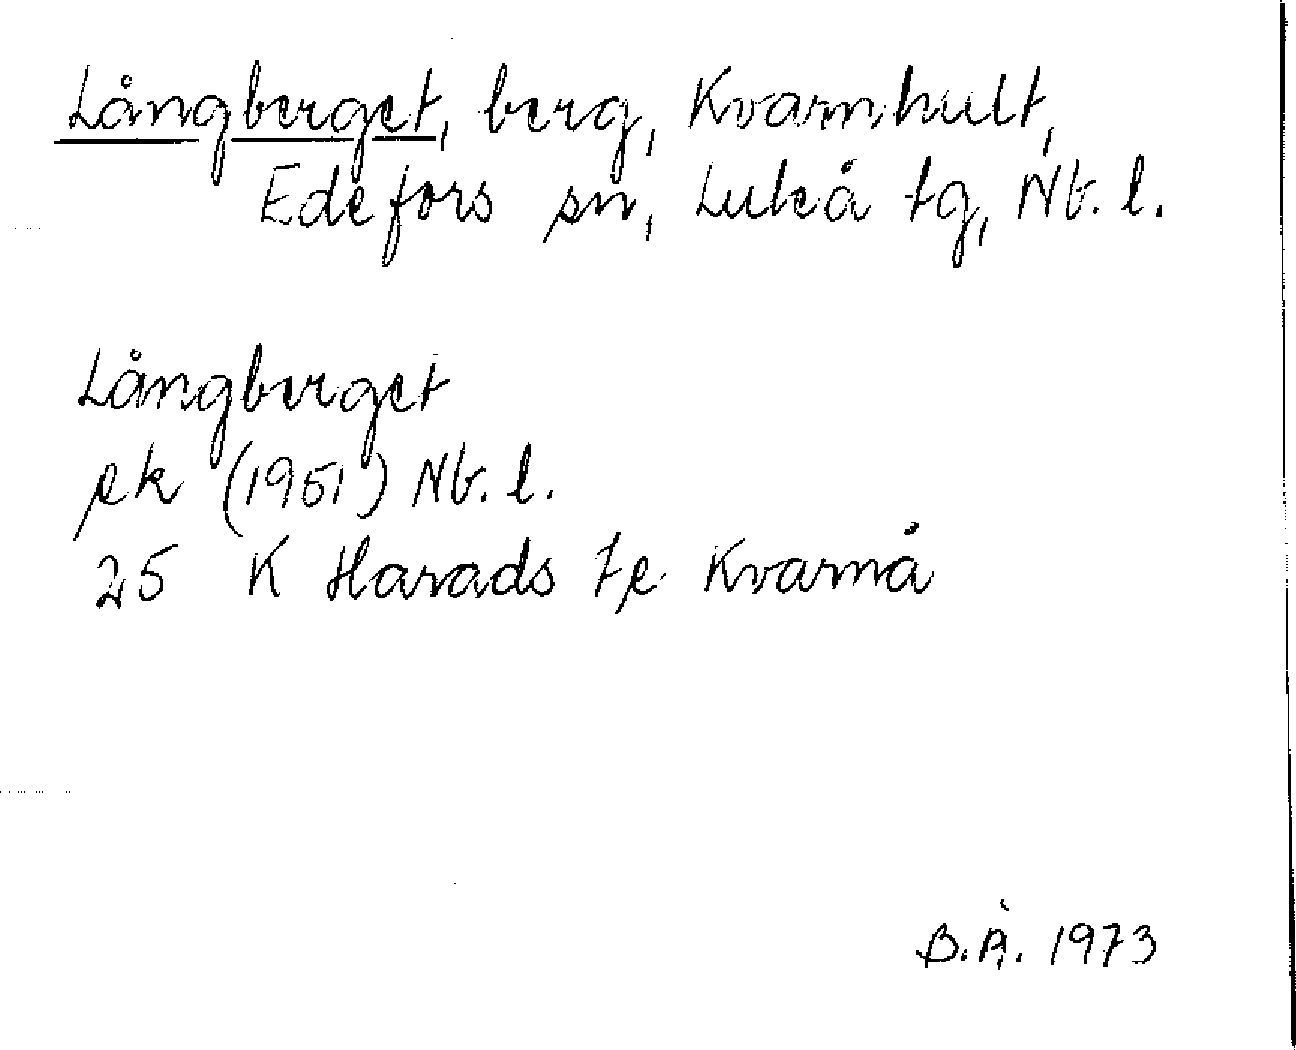 Långberget, berg, Kvarnhult,
Edefors sn, Luleå tg, Nb. l.
Långberget
ek (1951) Nb. l.
25 K Harads te Kvarnå
B.Å. 1973